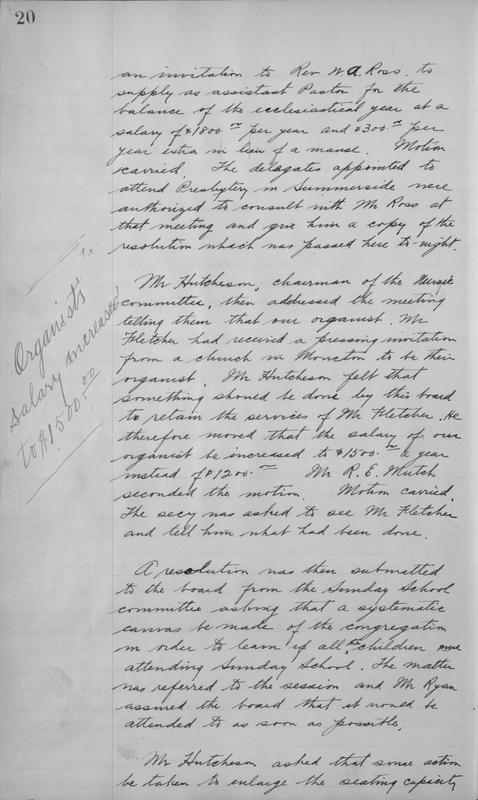 20
an invitation to Rev W.A. Ross. to
supply as assistant Pastor for the
balance of the ecclesiastical year at a
salary of $1800.00 per year and $300.00 per
year extra in lieu of a manse. Motion
carried. The delagates appointed to
attend Presbytery in Summerside were
authorized to consult with Mr Ross at
that meeting and give him a copy of the
resolution which was passed here to-night.
Mr Hutcheson, chairman of the Music
committee, then addressed the meeting
telling them that our organist. Mr
Fletcher had received a pressing invitation
from a church in Moncton to be their
organist. Mr Hutcheson felt that
something should be done by this board
to retain the services of Mr Fletcher. He
therefore moved that the salary of our
organist be increased to $1500.00 a year
instead of $1200.00 Mr R. E. Mutch
seconded the motion. Motion carried.
The secy was asked to see Mr Fletcher
and tell him what had been done.
Organists
salary increased
to $1500.00
A resolution was then submitted
to the board from the Sunday School
committee asking that a systematic
canvas be made of the congregation
in order to learn if all the children were
attending Sunday School. The matter
was referred to the session and Mr Ryan
assured the board that it would be
attended to as soon as possible.
Mr Hutcheson asked that some action
be taken to enlarge the seating capacity